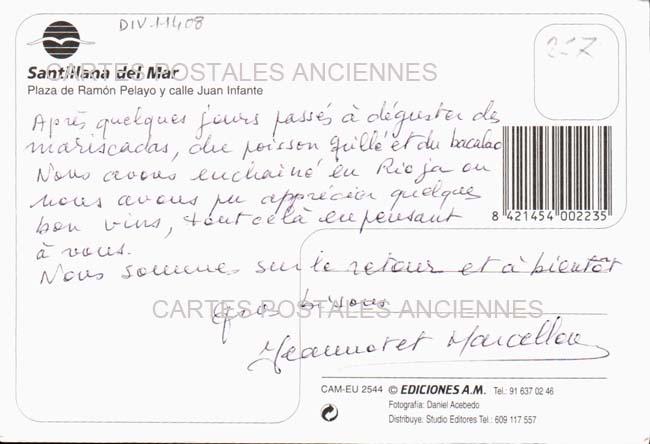 DIV.11408
257
Santillana del Mar
CARTES POSTALES ANCIENNES
Plaza de Ramón Pelayo y calle Juan Infante
Après quelques jours passés à déguster des
mariscadas, du poisson grillé et du bacalao
Nous avons enchainé en Rioja ou
nous avons pu apprécier quelques
bon vins, tout celà en pensant
à vous.
Nous sommes sur le retour et à bientôt
Gros bisous
CARTES POSTALES ANCIENNES
Jeannot et
8 421454 002235
CAM-EU 2544 © EDICIONES A.M. Tel.: 91 637 02 46
Fotografía: Daniel Acebedo
Distribuye: Studio Editores Tel.: 609 117 557